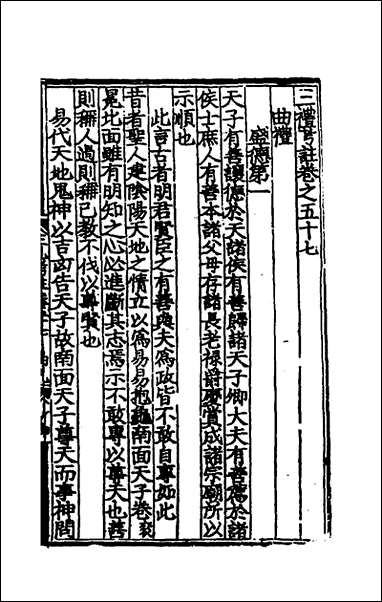 三禮考註卷之五十七
曲禮
盛德第一
天子有善讓德於天諸侯有善歸諸天子卿大夫有善薦於諸
侯士庶人有善本諸父母存諸長老禄爵慶賞成諸宗廟所以
示順也
此言古者明君賢臣之有善與夫為政皆不敢自專如此
昔者聖人建陰陽天地之情立以為易易抱龜南面天子卷冕
冕北面雖有明知之心必進斷其志焉示不敢專以尊天也善
則稱人過則稱己教不伐以尊賢也
易代天地鬼神以吉凶告天子故南面天子尊天而事神問